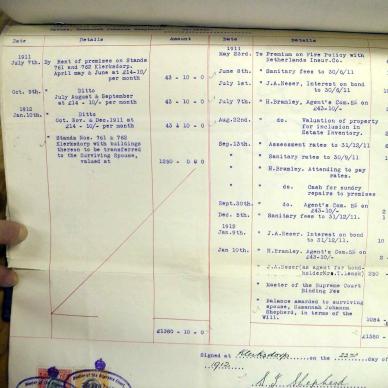 Date Details Amount Date Details
1911
July 7th. By Rent of premises on Stands
761 and 762 Klerksdorp.
April may & June at £14-10/-
per month 43 - 10 - 0
Oct. 9th. " Ditto
July August & September
at £14 - 10/- per month 43 - 10 - 0
1912
Jan.10th. " Ditto
Oct. Nov. & Dec.1911 at
£14 - 10/- per month 43 - 10 - 0
" Stands Nos. 761 & 762
Klerksdorp with buildings
thereon to be transferred
to the Surviving Spouse,
valued at 1250 - 0 - 0
£1380 - 10 - 0
1911
May 23rd. To Premium on Fire Policy with
Netherlands Insur.Co.
June 8th. " Sanitary fees to 30/6/11
July 1st. " J.A.Neser, Interest on bond
to 30/6/11
July 7th. " H.Bramley, Agent's Com. 5% on
£43-10/-
Aug.22nd. " do. Valuation of property
for inclusion in
Estate Inventory.
Sep.13th. " Assessment rates to 31/12/11
" " Sanitary rates to 30/9/11
" " H.Bramley, Attending to pay
rates.
" " do. Cash for sundry
repairs to premises
Sept.30th. " do. Agent's Com. 5% on
£43-10/-
Dec. 8th. " Sanitary fees to 31/12/11.
1912
Jan.9th. " J.A.Neser, Interest on bond
to 31/12/11.
Jan 10th. " H.Bramley, Agent's Com.5% on
£43-10/-
" J.A.Neser(as Agent for bond-
" Master of the Supreme Court
" Balance awarded to surviving
spouse, Susannah Johanna
Shepherd, in terms of
the Will. 1084
£1380 - 10 - 0
Signed at Klerksdorp on the 22nd day of
1912.
S. J. Shepherd